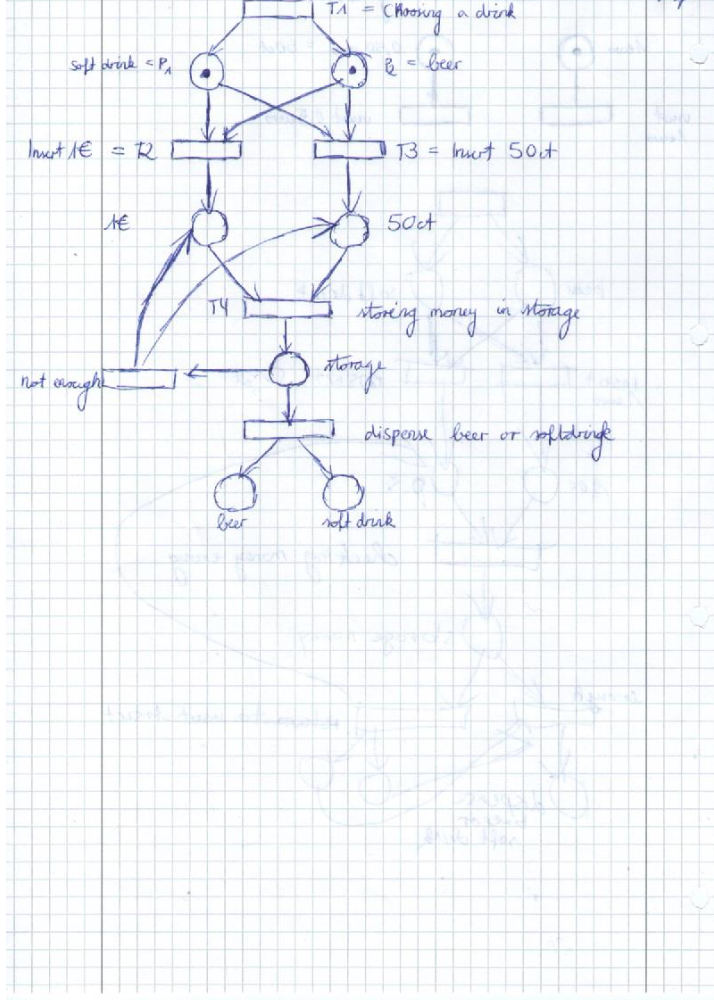 T1 = Choosing a drink
soft drink = P1
P2 = beer
Insert 1€ = T2
T3 = Insert 50ct
1€
50ct
T4
storing money in storage
storage
not enough
dispense beer or softdrink
beer
soft drink